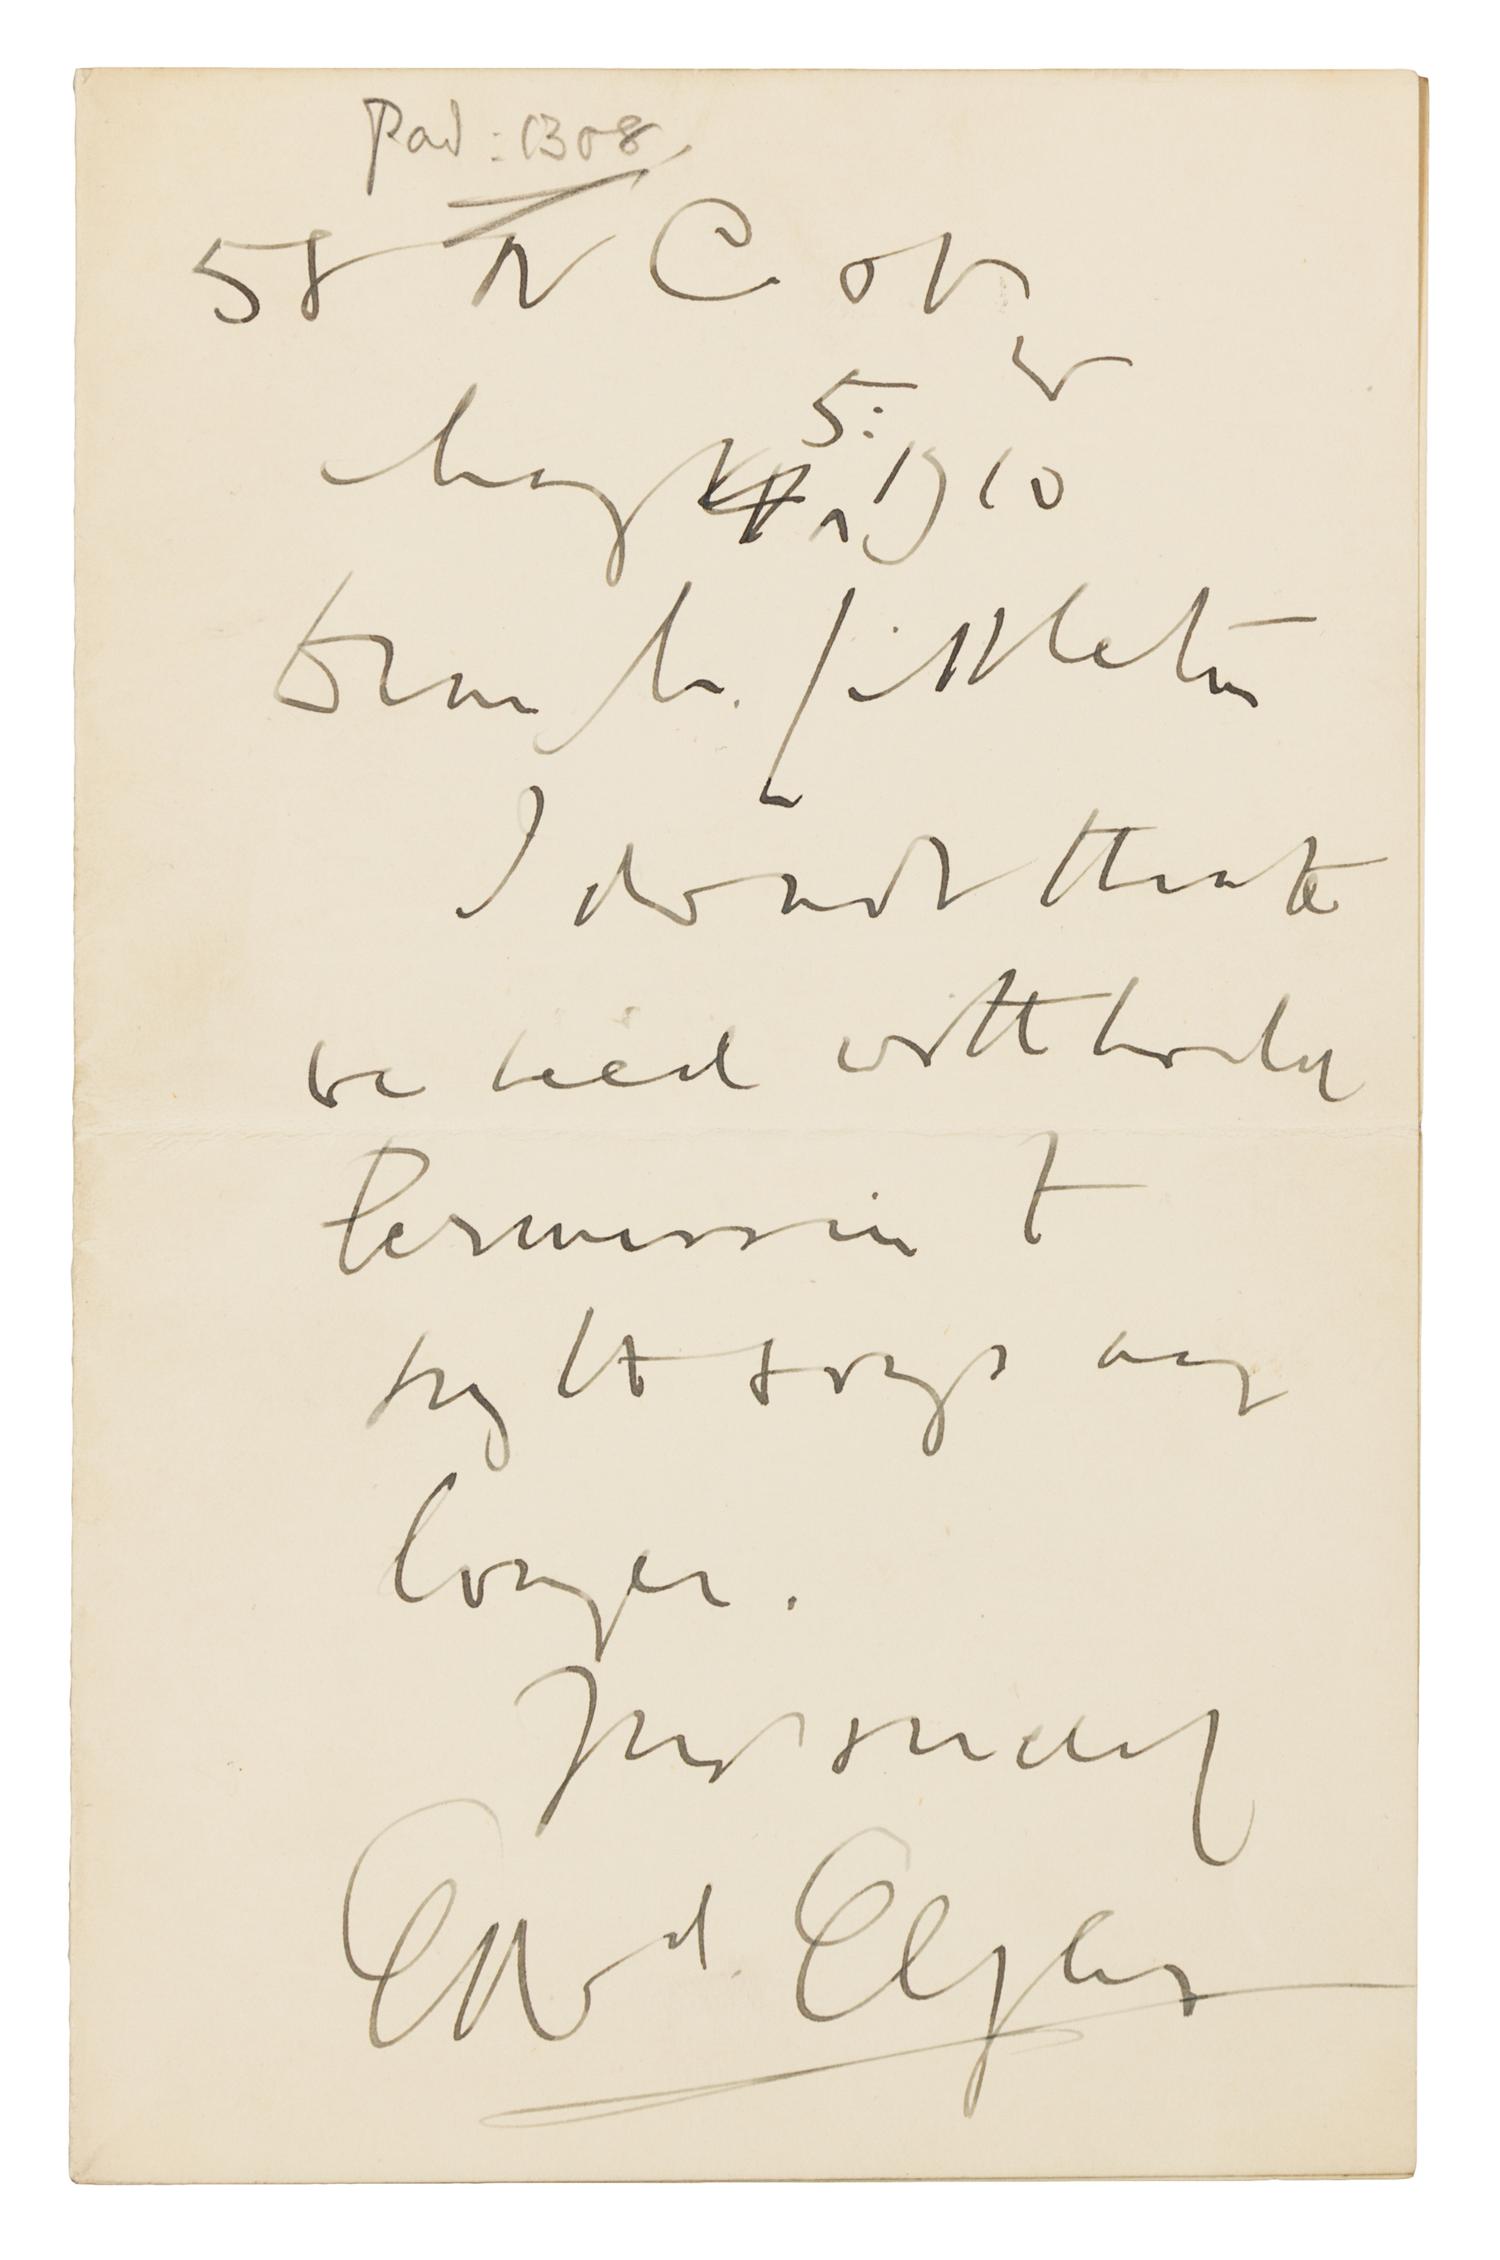 Pad: 1308
58 N C St
W
May 5: 1910
Dear Mr. Littleton
I do not think
we need withhold
permission to
try the songs any
longer.
Yrs sincerely
Edwd. Elgar